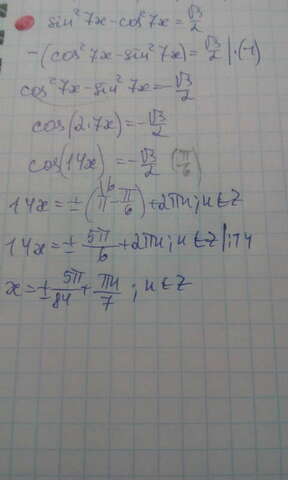 sin²7x-cos²7x=√3/2
-(cos²7x-sin²7x)=√3/2 |·(-1)
cos²7x-sin²7x=-√3/2
cos(2·7x)=-√3/2
cos(14x)=-√3/2 (π/6)
14x=±(π\6-π/6)+2πn; n∈Z
14x=±5π/6+2πn; n∈Z |:14
x=±5π/84+πn/7; n∈Z